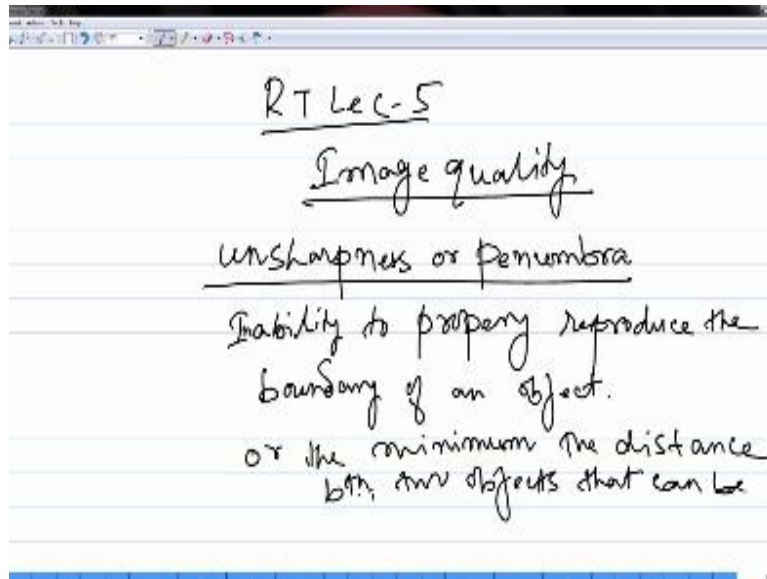 RT Lec-5
Image quality
unsharpness or penumbra
Inability to propery reproduce the
boundary of an object.
or the minimum the distance
btn, two objects that can be